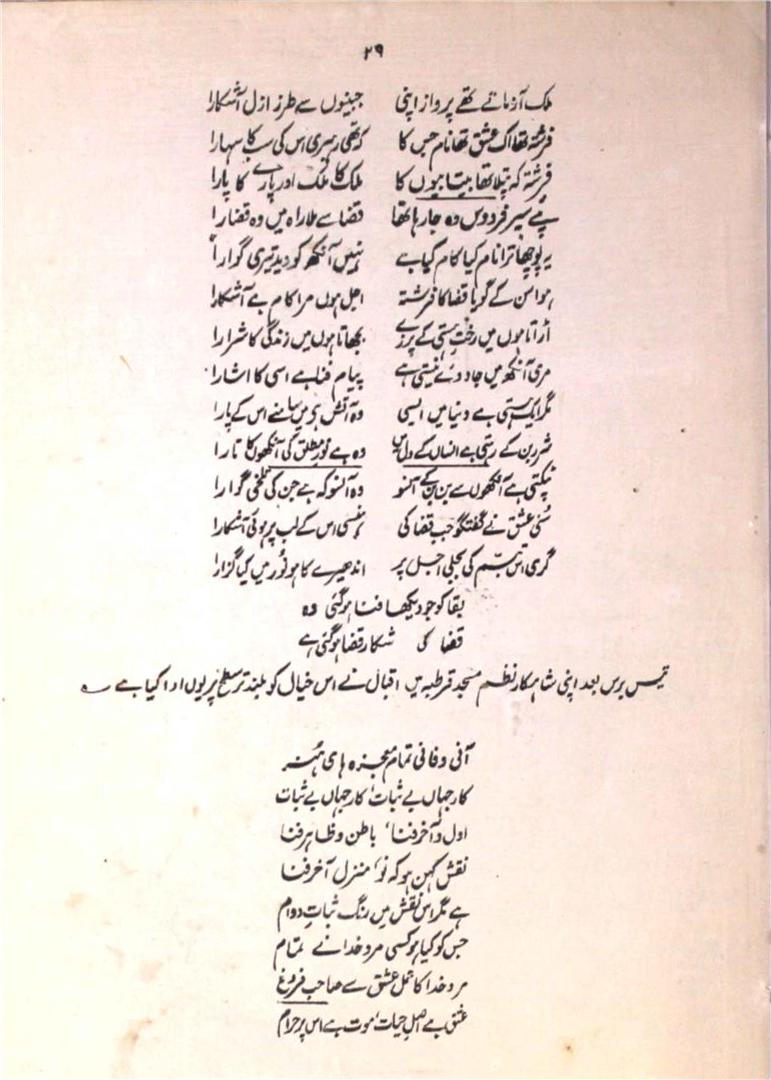 ۲۹
ملک آزماتے تھے پرواز اپنی جبینوں سے طرز ازل آشکارا
فرشتہ تھا اک عشق تھا نام جس کا کہ تھی رہبری اس کی سب کا سہارا
فرشتہ کہ پتلا تھا بیتابیوں کا ملک کا ملک اور پارے کا پارا
پے سیر فردوس وہ جا رہا تھا قضا سے ملا راہ میں وہ قضارا
یہ پوچھا ترا نام کیا کام کیا ہے نہیں آنکھ کو دید تیری گوارا
ہوا سن کے گویا قضا کا فرشتہ اجل ہوں مرا کام ہے آشکارا
اڑاتا ہوں میں رخت ہستی کے پرزے بجھاتا ہوں میں زندگی کا شرارا
مری آنکھ میں جادوئے نیستی ہے پیام فنا ہے اسی کا اشارا
مگر ایک ہستی ہے دنیا میں ایسی وہ آتش ہے میں سامنے اس کے پارا
شرر بن کے رہتی ہے انساں کے دل میں وہ ہے نور مطلق کی آنکھوں کا تارا
ٹپکتی ہے آنکھوں سے بن بن کے آنسو وہ آنسو کہ ہے جن کی تلخی گوارا
سنی عشق نے گفتگو جب قضا کی ہنسی اس کے لب پر ہوئی آشکارا
گری اس تبسم کی بجلی اجل پر اندھیرے کا ہو نور میں کیا گزارا
بقا کو جو دیکھا فنا ہو گئی وہ
قضا کی شکار قضا ہو گئی ہے
تیس برس بعد اپنی شاہکار نظم مسجد قرطبہ میں اقبال نے اس خیال کو بلند تر سطح پر یوں ادا کیا ہے ؎
آنی و فانی تمام معجزہ ہای ہنر
کار جہاں بے ثبات، کار جہاں بے ثبات
اول و آخر فنا، باطن و ظاہر فنا
نقش کہن ہو کہ نو، منزل آخر فنا
ہے مگر اس نقش میں رنگ ثباتِ دوام
جس کو کیا ہو کسی مرد خدا نے تمام
مرد خدا کا عمل عشق سے صاحب فروغ
عشق ہے اصل حیات، موت ہے اس پر حرام